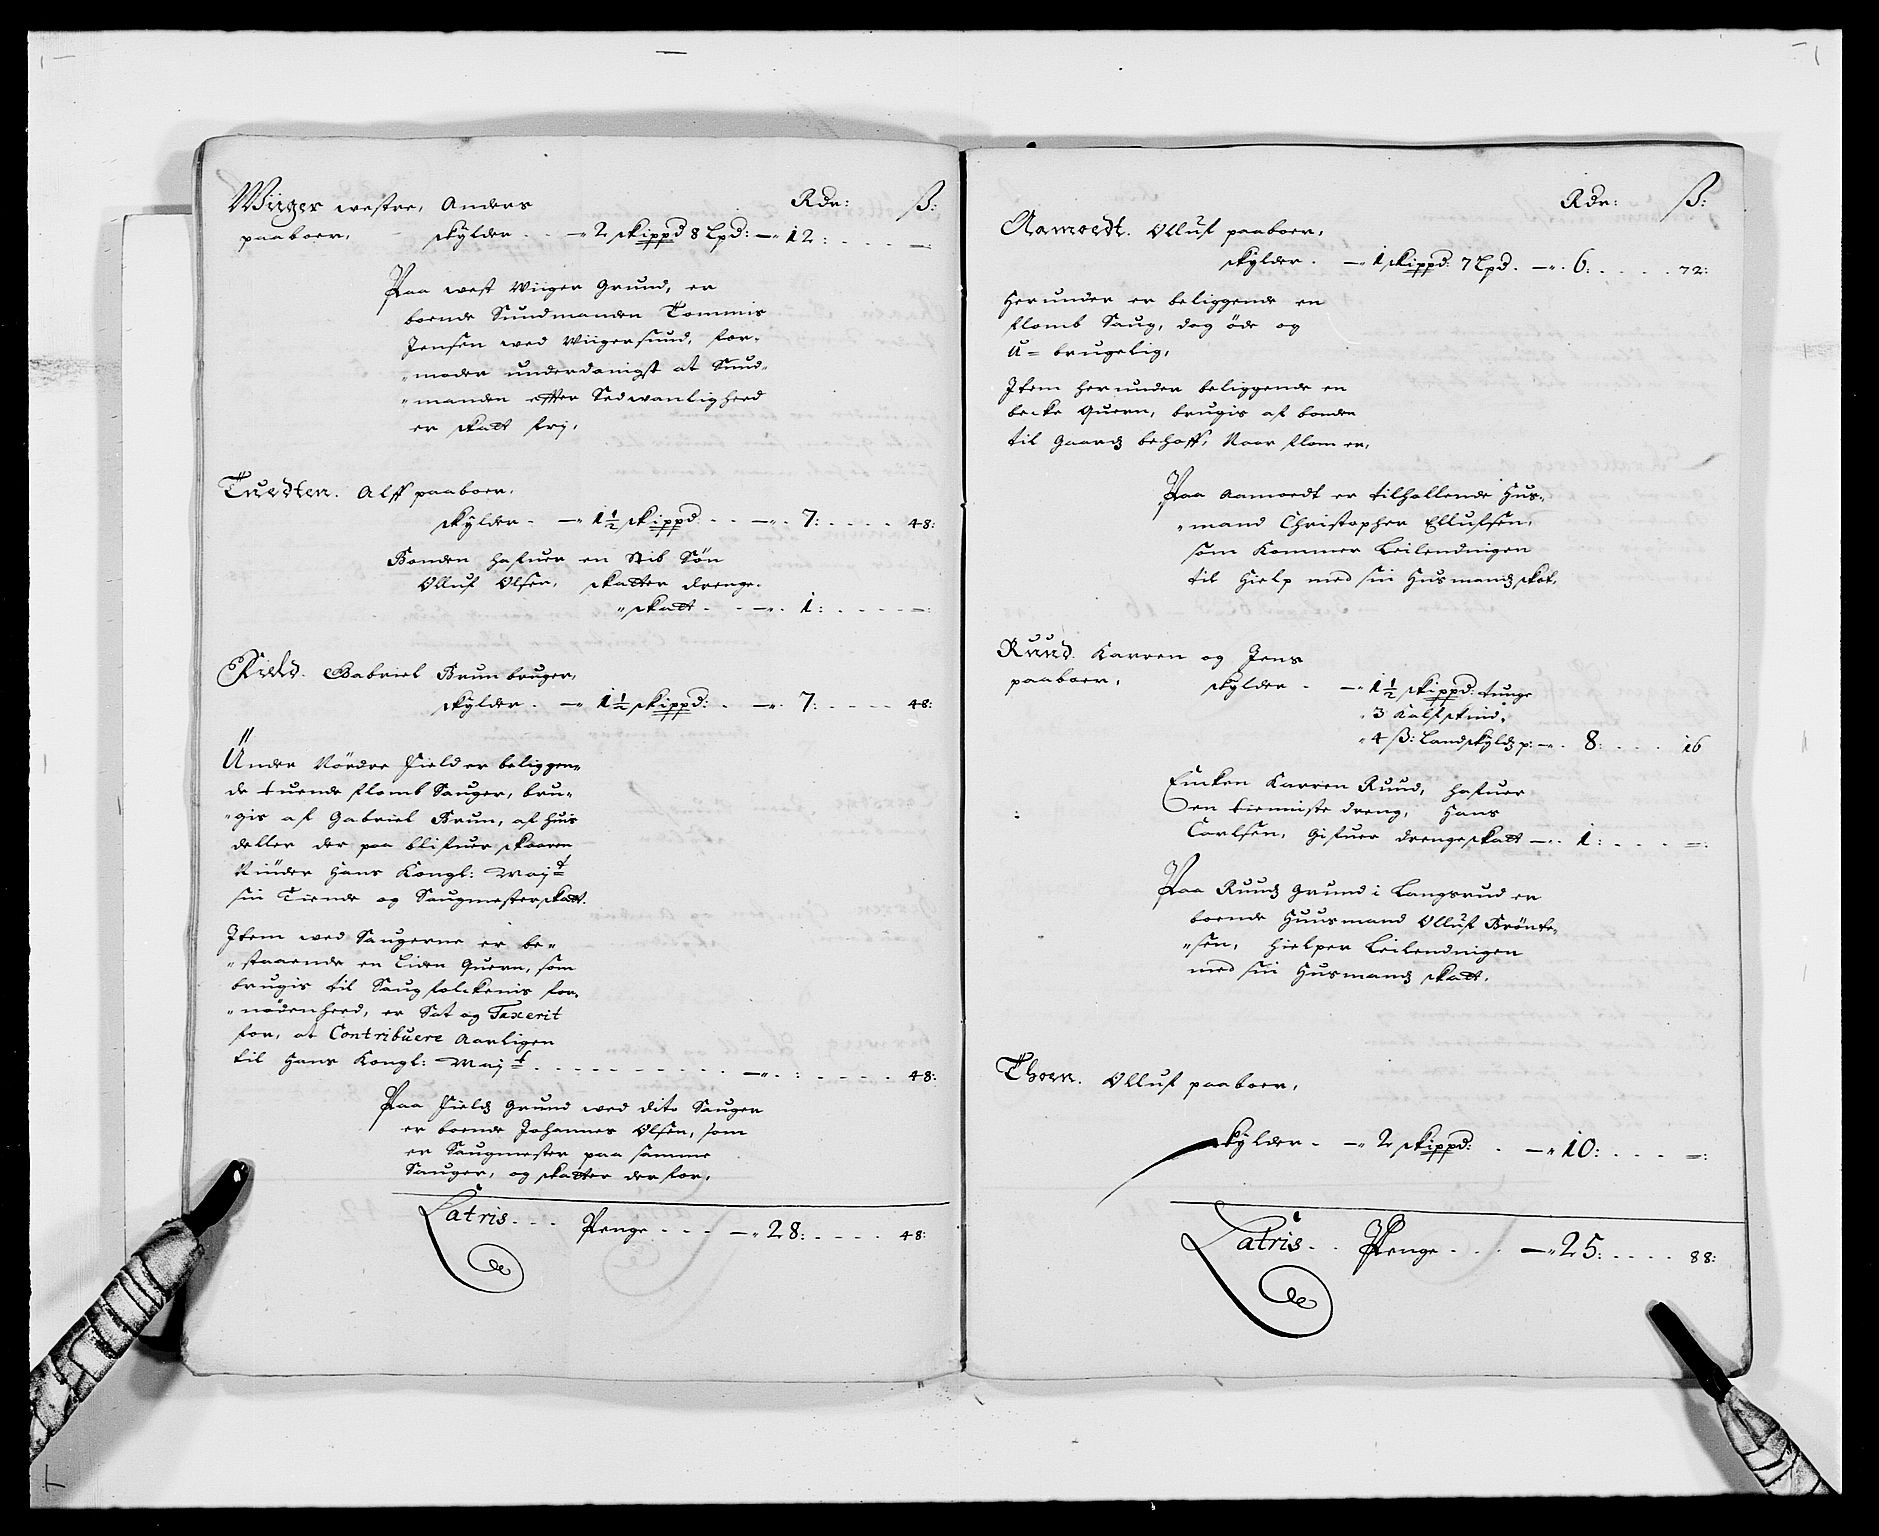 Wiiger westre, Anders Rdr: ß:
paaboer, skylder - 2 skippd 8 Lpd: - 12: -
Paa west Wiiger Grund, er
boende Sundmanden Tommis
Jensen wed Wiigersund, for-
moder underdanigst at Sund-
manden effter Sedwanligheed
er skatt frj,
Tuedten. Alff paaboer,
skylder - 1½ skippd - 7: 48:
Bonden hafuer en Stib Søn
Olluf Olsen, skatter drenge-
skatt - 1: -
Field. Gabriel Brun bruger,
skylder - 1½ skippd: - 7: 48:
Under Nördre Field er beliggen-
de tuende flomb Sauger, bru-
gis af Gabriel Brun, af huis
deller der paa blifuer skaaren
Niüder Hans Kongl: Maytt
sin Tiende og Saugmesterskatt.
Item wed Saugerne er be-
staaende en Liden Quern, som
brugis til Saugfolckenis for-
nödenheed, er Sat og Taxerit
for, at Contribuere Aarligen
til Hans Kongl: Maytt - : 48:
Paa Fields Grund wed dito Sauger
er boende Johannes Olsen, som
er Saugmester paa samme
Sauger, og skatter derfor,
Latris - Penge - 28: 48:
Rdr: ß:
Aamoedt. Olluf paaboer,
skylder - 1 skippd: 7 Lpd - 6: 72:
Herunder er beliggende en
flomb Saug, dog öde og
U= brugelig,
Item herunder beliggende en
becke Quern, brugis af bonden
til Gaards behoff, Naar flom er,
Paa Aamoedt er tilhollende Hus-
mand Christopher Ellufsen,
som kommer Leilendingen
til Hielp med sin Husmands skat,
Ruud. Karren og Jens
paaboer, skylder - 1½ skippd: tunge
3 Kalfskind,
4 ß: Landskylds p: - 8: 16
Encken Karren Ruud, hafuer
en tienniste dreng, Hans
Carlsen, Gifuer drengeskatt - 1: -
Paa Ruuds Grund i Langerud er
boende Huusmand Olluf Brönte-
sen, Hielper Leilendingen
med sin Husmands skatt,
Thoen. Olluf paaboer,
skylder - 2 skippd: - 10: -
Latris - Penge - 25: 88: